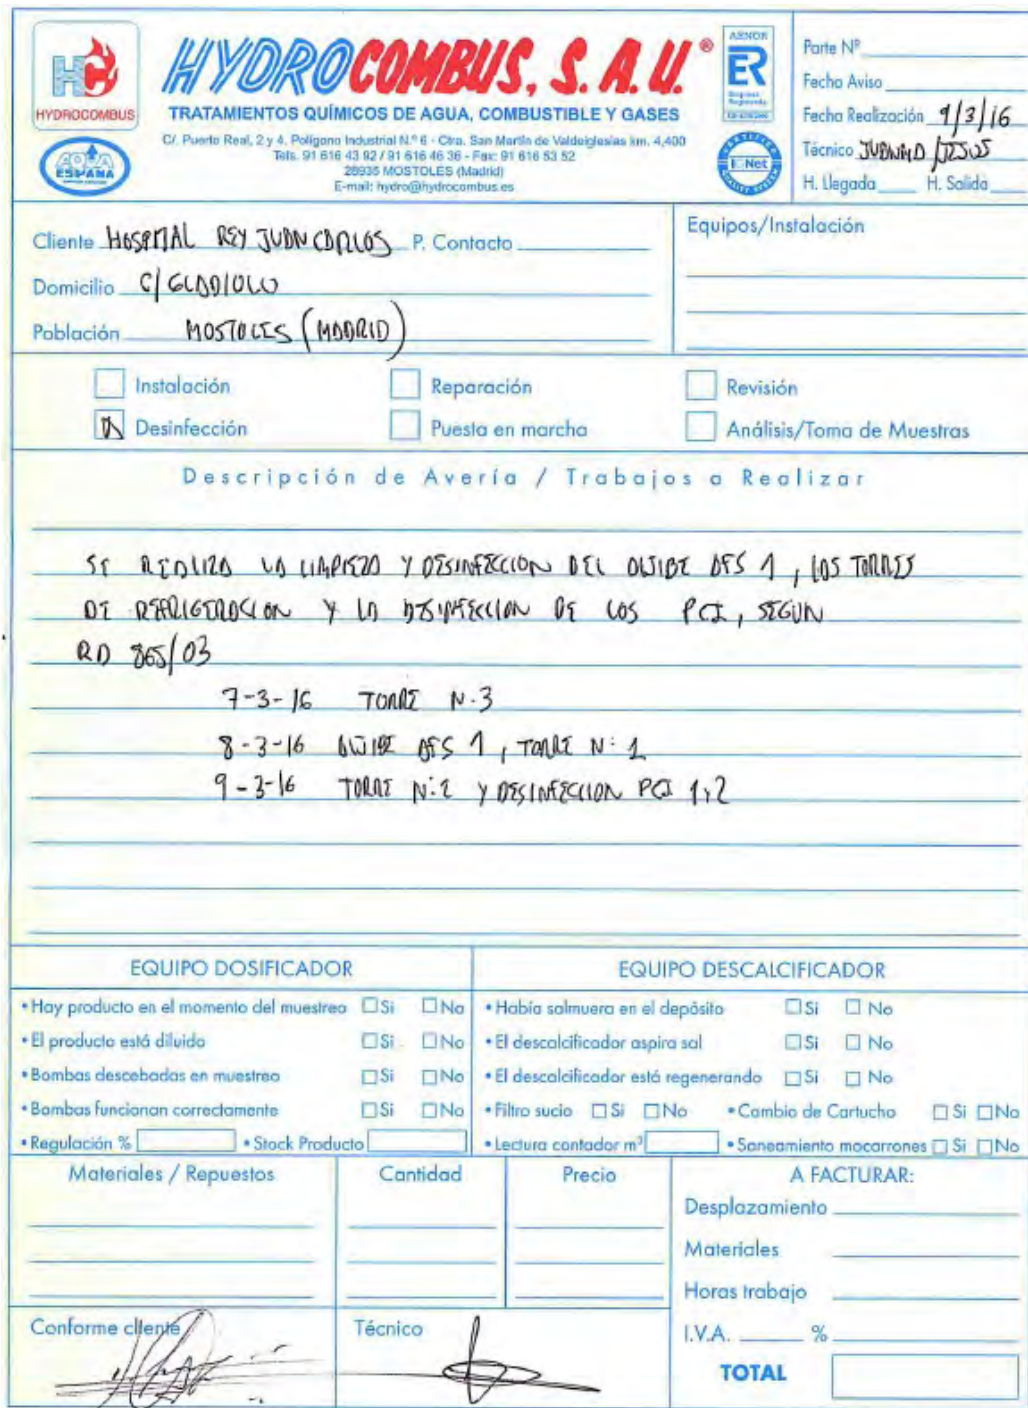 HC
HYDROCOMBUS
AQUA
ESPAÑA
HYDROCOMBUS, S. A. U.®
TRATAMIENTOS QUÍMICOS DE AGUA, COMBUSTIBLE Y GASES
C/. Puerto Real, 2 y 4. Polígono Industrial N.º 6 - Ctra. San Martín de Valdeiglesias km. 4,400
Tels. 91 616 43 92 / 91 616 46 36 - Fax: 91 616 53 52
28935 MOSTOLES (Madrid)
E-mail: hydro@hydrocombus.es
AENOR
ER
Empresa
Registrada
CERTIFIED
IQNet
QUALITY SYSTEM
Parte Nº
Fecha Aviso
Fecha Realización 9/3/16
Técnico JUANMA/JESUS
H. Llegada H. Salida
Cliente HOSPITAL REY JUAN CARLOS P. Contacto
Domicilio C/ GLADIOLO
Población MOSTOLES (MADRID)
Equipos/Instalación
Instalación Reparación Revisión
Desinfección Puesta en marcha Análisis/Toma de Muestras
Descripción de Avería / Trabajos a Realizar
SE REALIZA LA LIMPIEZA Y DESINFECCION DEL ALJIBE AFS 1, LAS TORRES
DE REFRIGERACION Y LA DESINFECCION DE LOS PCI, SEGUN
RD 865/03
7-3-16 TORRE N.3
8-3-16 ALJIBE AFS 1, TORRE N: 1
9-3-16 TORRE N:2 Y DESINFECCION PCI 1,2
EQUIPO DOSIFICADOR
• Hay producto en el momento del muestreo Si No
• El producto está diluido Si No
• Bombas descebadas en muestreo Si No
• Bombas funcionan correctamente Si No
• Regulación % • Stock Producto
EQUIPO DESCALCIFICADOR
• Había salmuera en el depósito Si No
• El descalcificador aspira sal Si No
• El descalcificador está regenerando Si No
• Filtro sucio Si No • Cambio de Cartucho Si No
• Lectura contador m³ • Saneamiento mocarrones Si No
Materiales / Repuestos Cantidad Precio
A FACTURAR:
Desplazamiento
Materiales
Horas trabajo
I.V.A. %
TOTAL
Conforme cliente Técnico